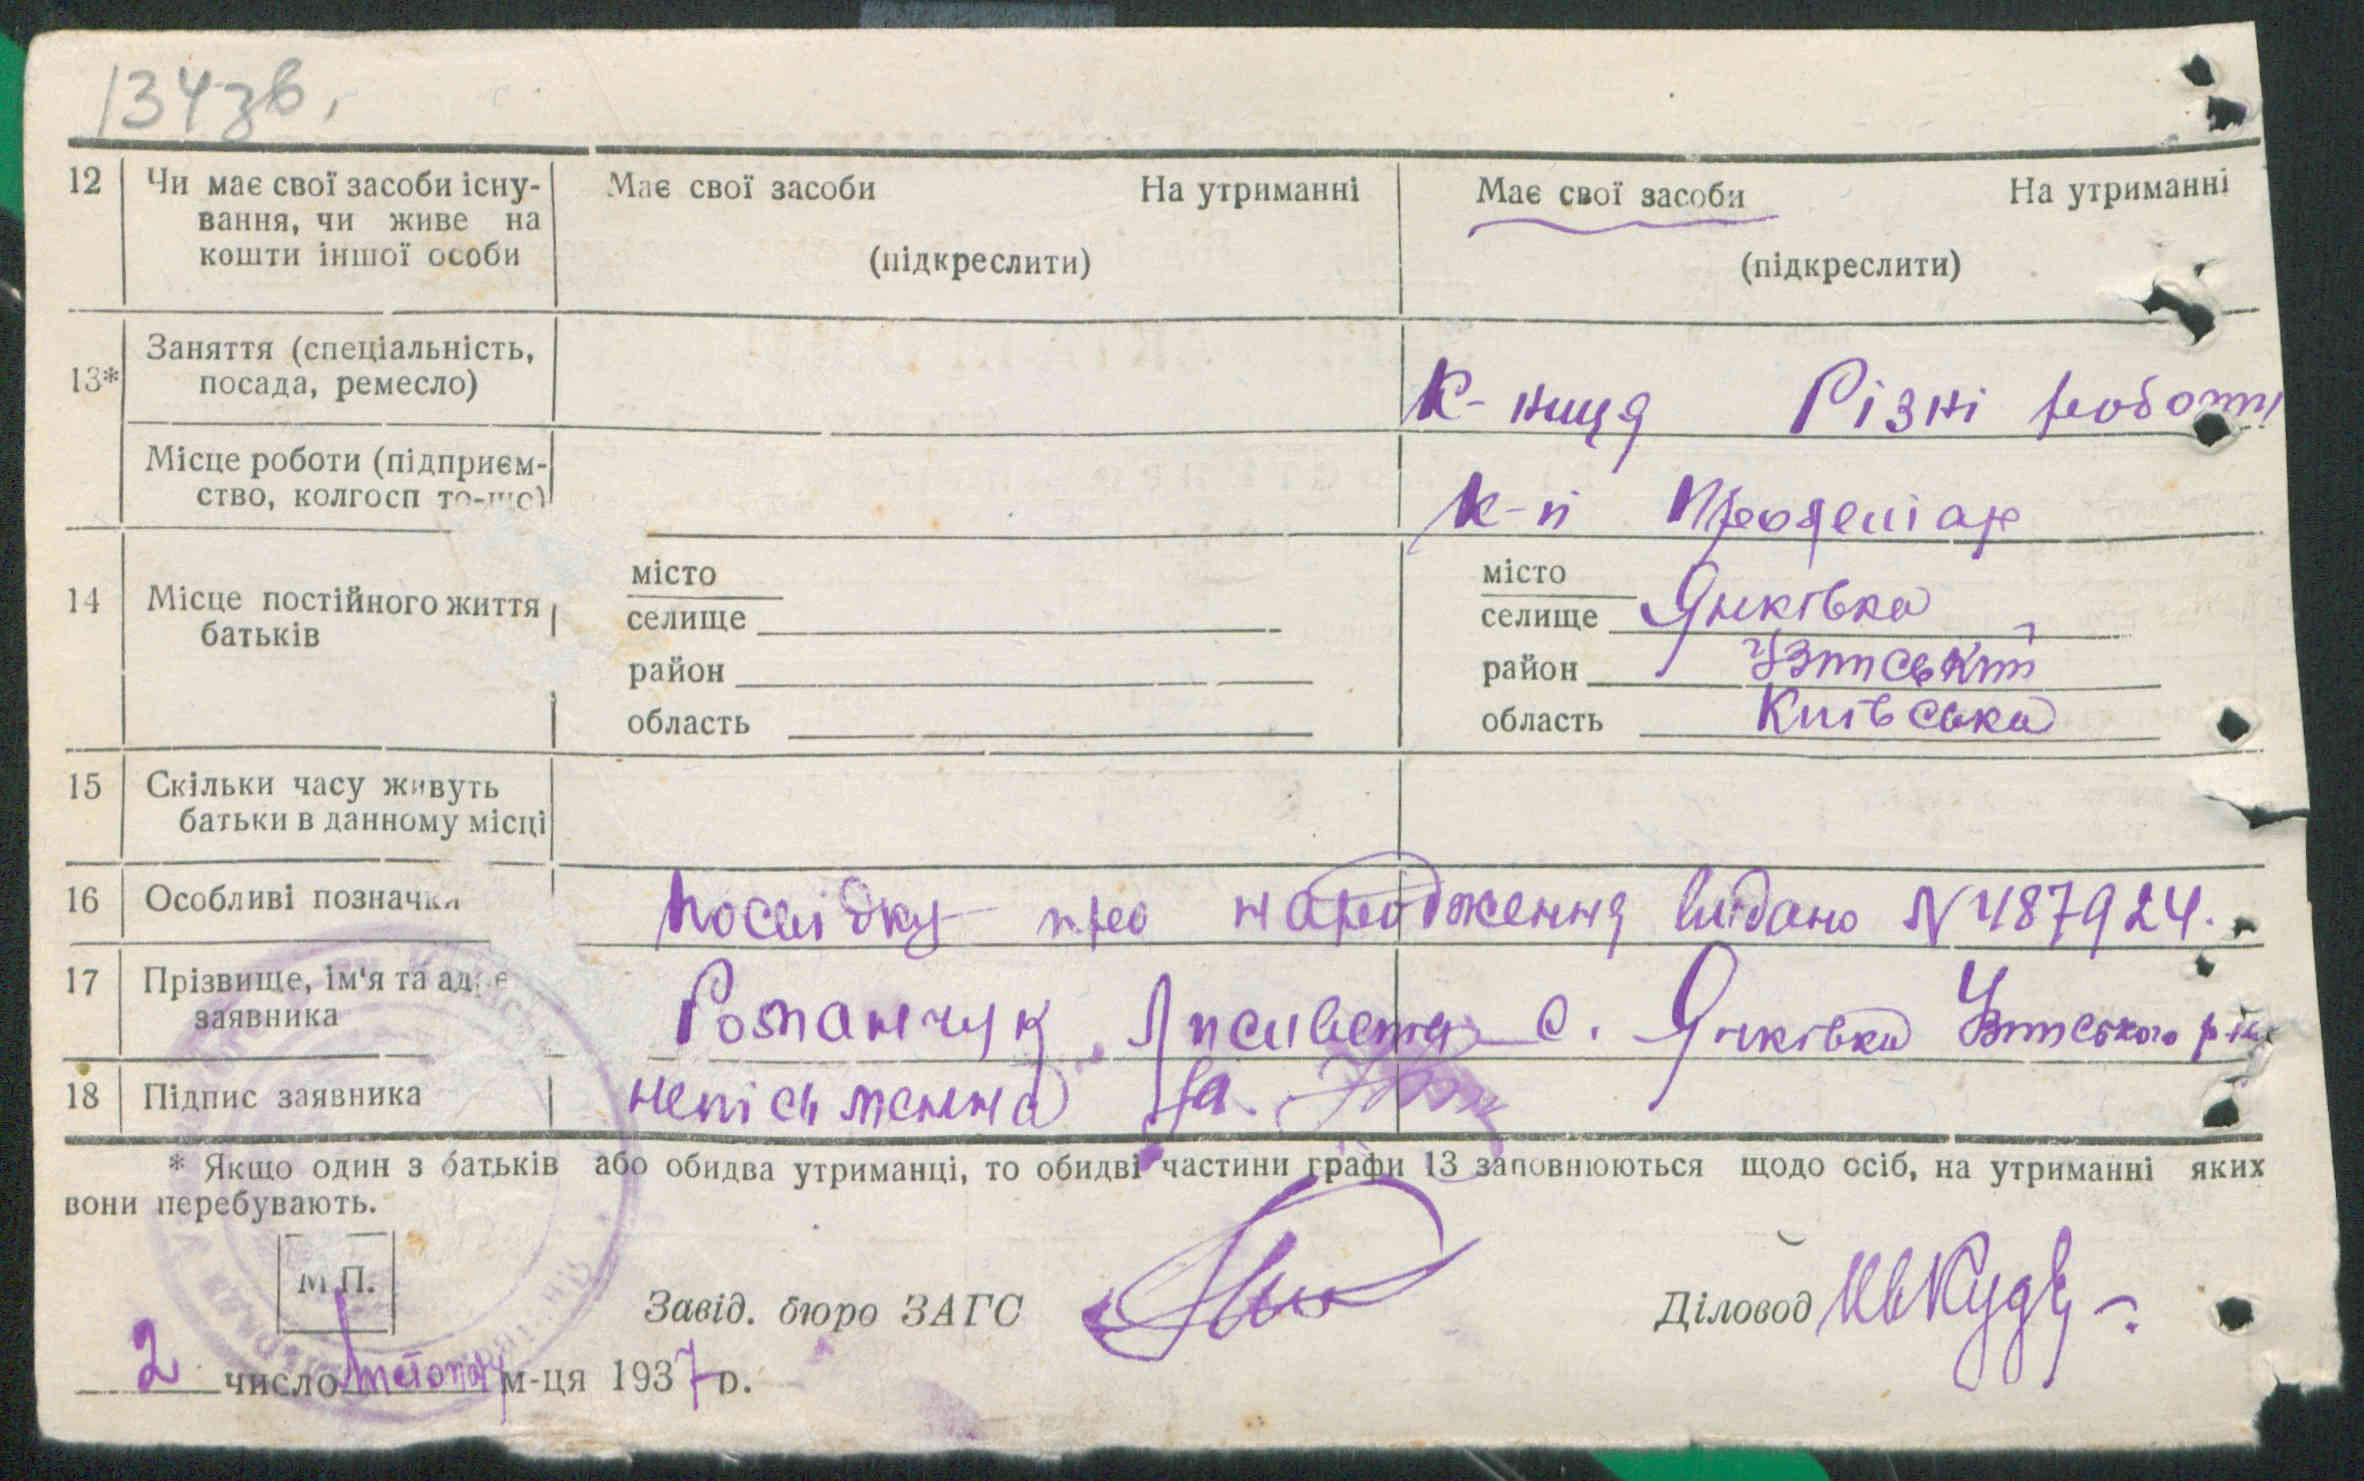 134зв.
12 Чи має свої засоби існу- Має свої засоби На утриманні Має свої засоби На утриманні
вання, чи живе на
кошти іншої особи (підкреслити) (підкреслити)
13* Заняття (спеціальність,
посада, ремесло) К-ниця Різні роботи
Місце роботи (підприєм-
ство, колгосп то-що) к-п Пролетіар
14 Місце постійного життя
батьків
місто місто
селище селище Янківка
район район Узинський
область область Київська
15 Скільки часу живуть
батьки в данному місці
16 Особливі позначки Послідку про народження видано N 487924.
17 Прізвище, ім'я та адре
заявника Романчук Лисивета с. Янківка Узинського р-ну
18 Підпис заявника неписьменна за
* Якщо один з батьків або обидва утриманці, то обидві частини графи 13 заповнюються щодо осіб, на утриманні яких
вони перебувають.
М.П.
Завід. бюро ЗАГС Діловод
2 число лютого м-ця 1937 р.